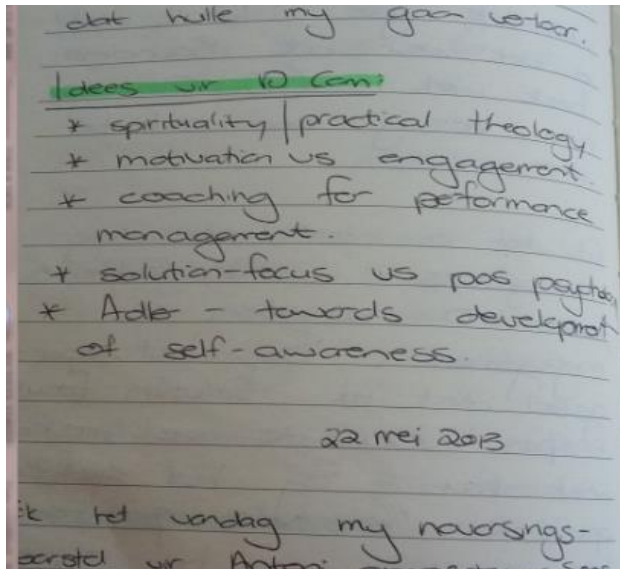 dat hulle my gaan
Idees vir D Com:
* spirituality / practical theology
* motivation vs engagement.
* coaching for performance
management.
* solution-focus vs pos psycho
* Adler - towards development
of self-awareness.
22 mei 2013
Ek het vandag my navorsings-
vir Antoni